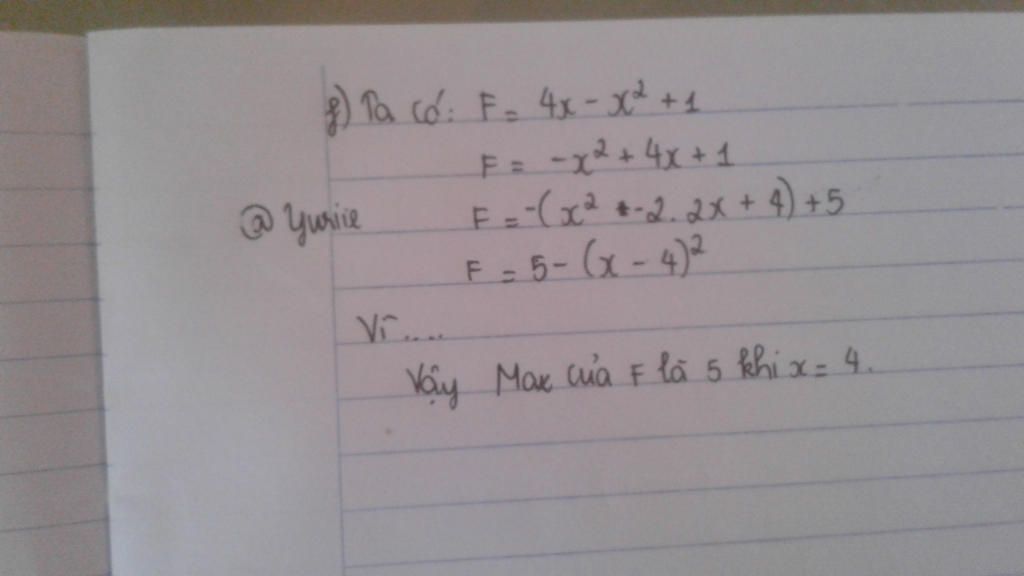 f) Ta có: F = 4x - x² + 1
F = -x² + 4x + 1
@ Yuriie F = -(x² - 2. 2x + 4) + 5
F = 5 - (x - 4)²
Vì....
Vậy Max của F là 5 khi x = 4.